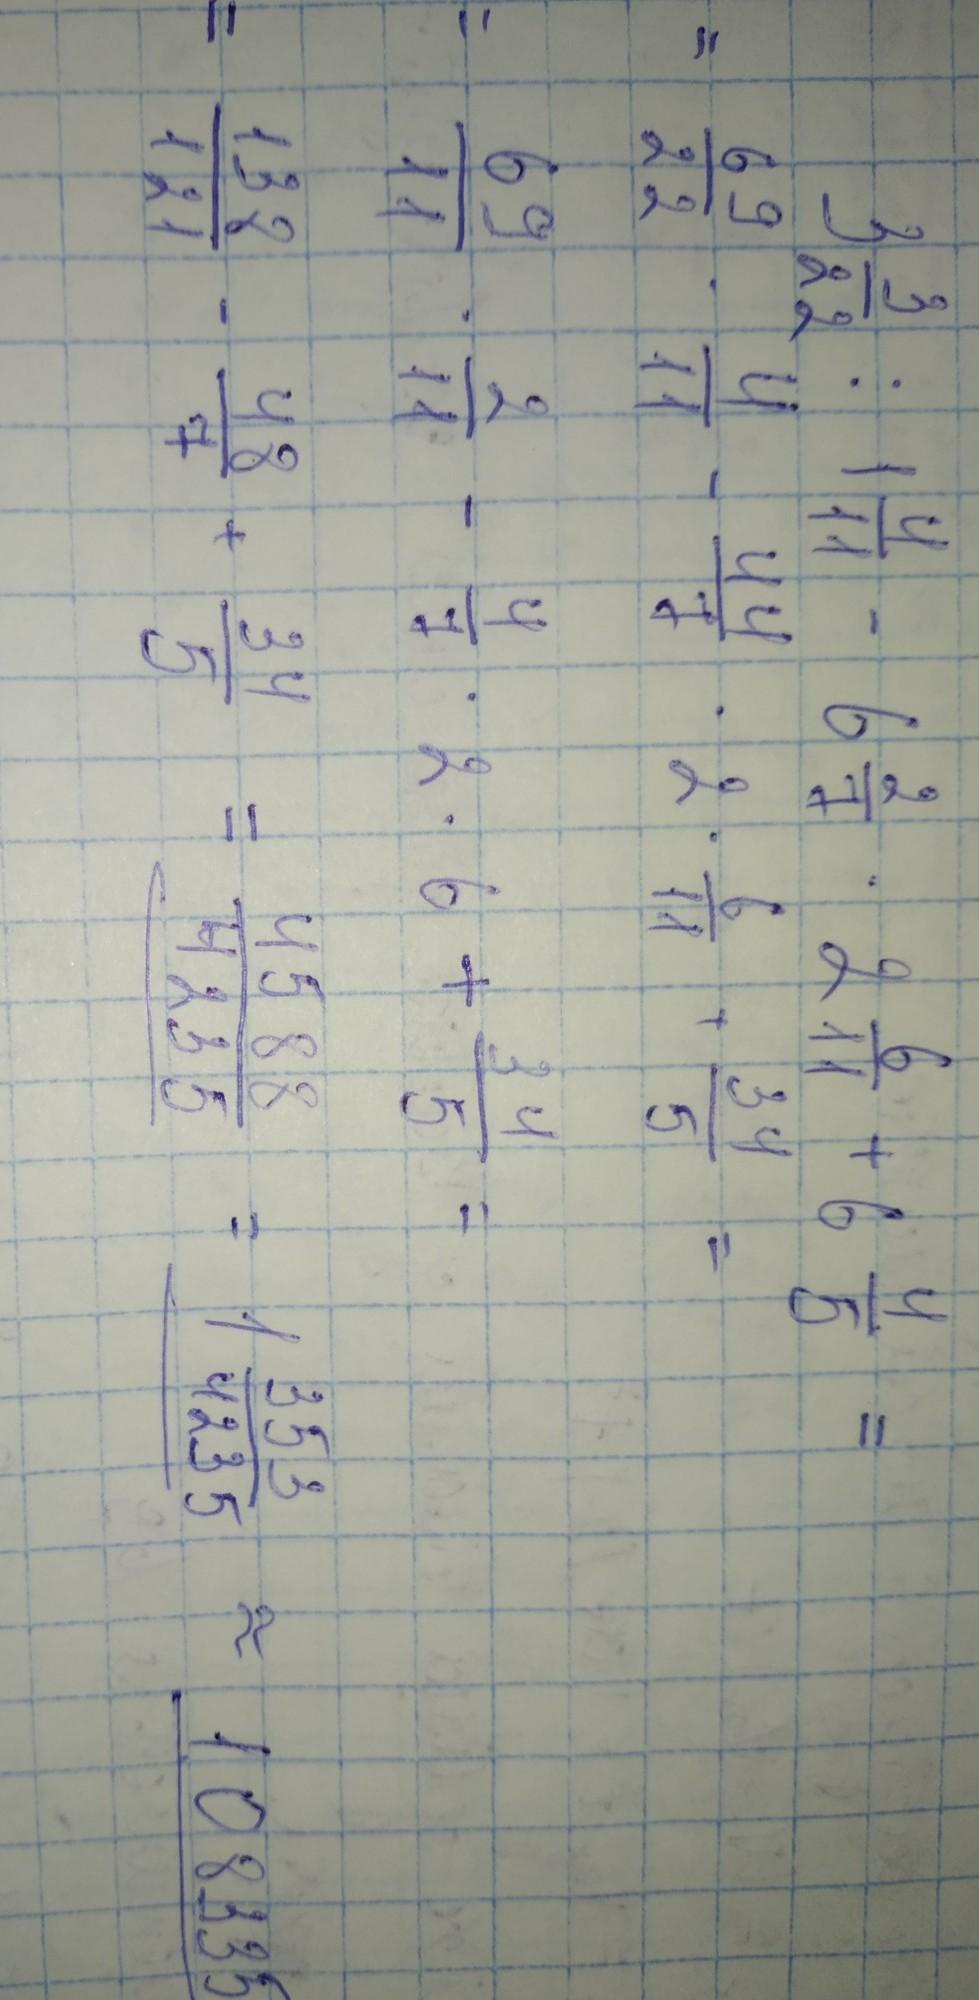 3 3/22 : 1 4/11 - 6 2/7 · 2 6/11 + 6 4/5 =
= 69/22 · 4/11 - 44/7 · 2 · 6/11 + 34/5 =
= 69/11 · 2/11 - 4/7 · 2 · 6 + 34/5 =
= 138/121 - 48/7 + 34/5 = 4588/4235 = 1 353/4235 ≈ 1 08335